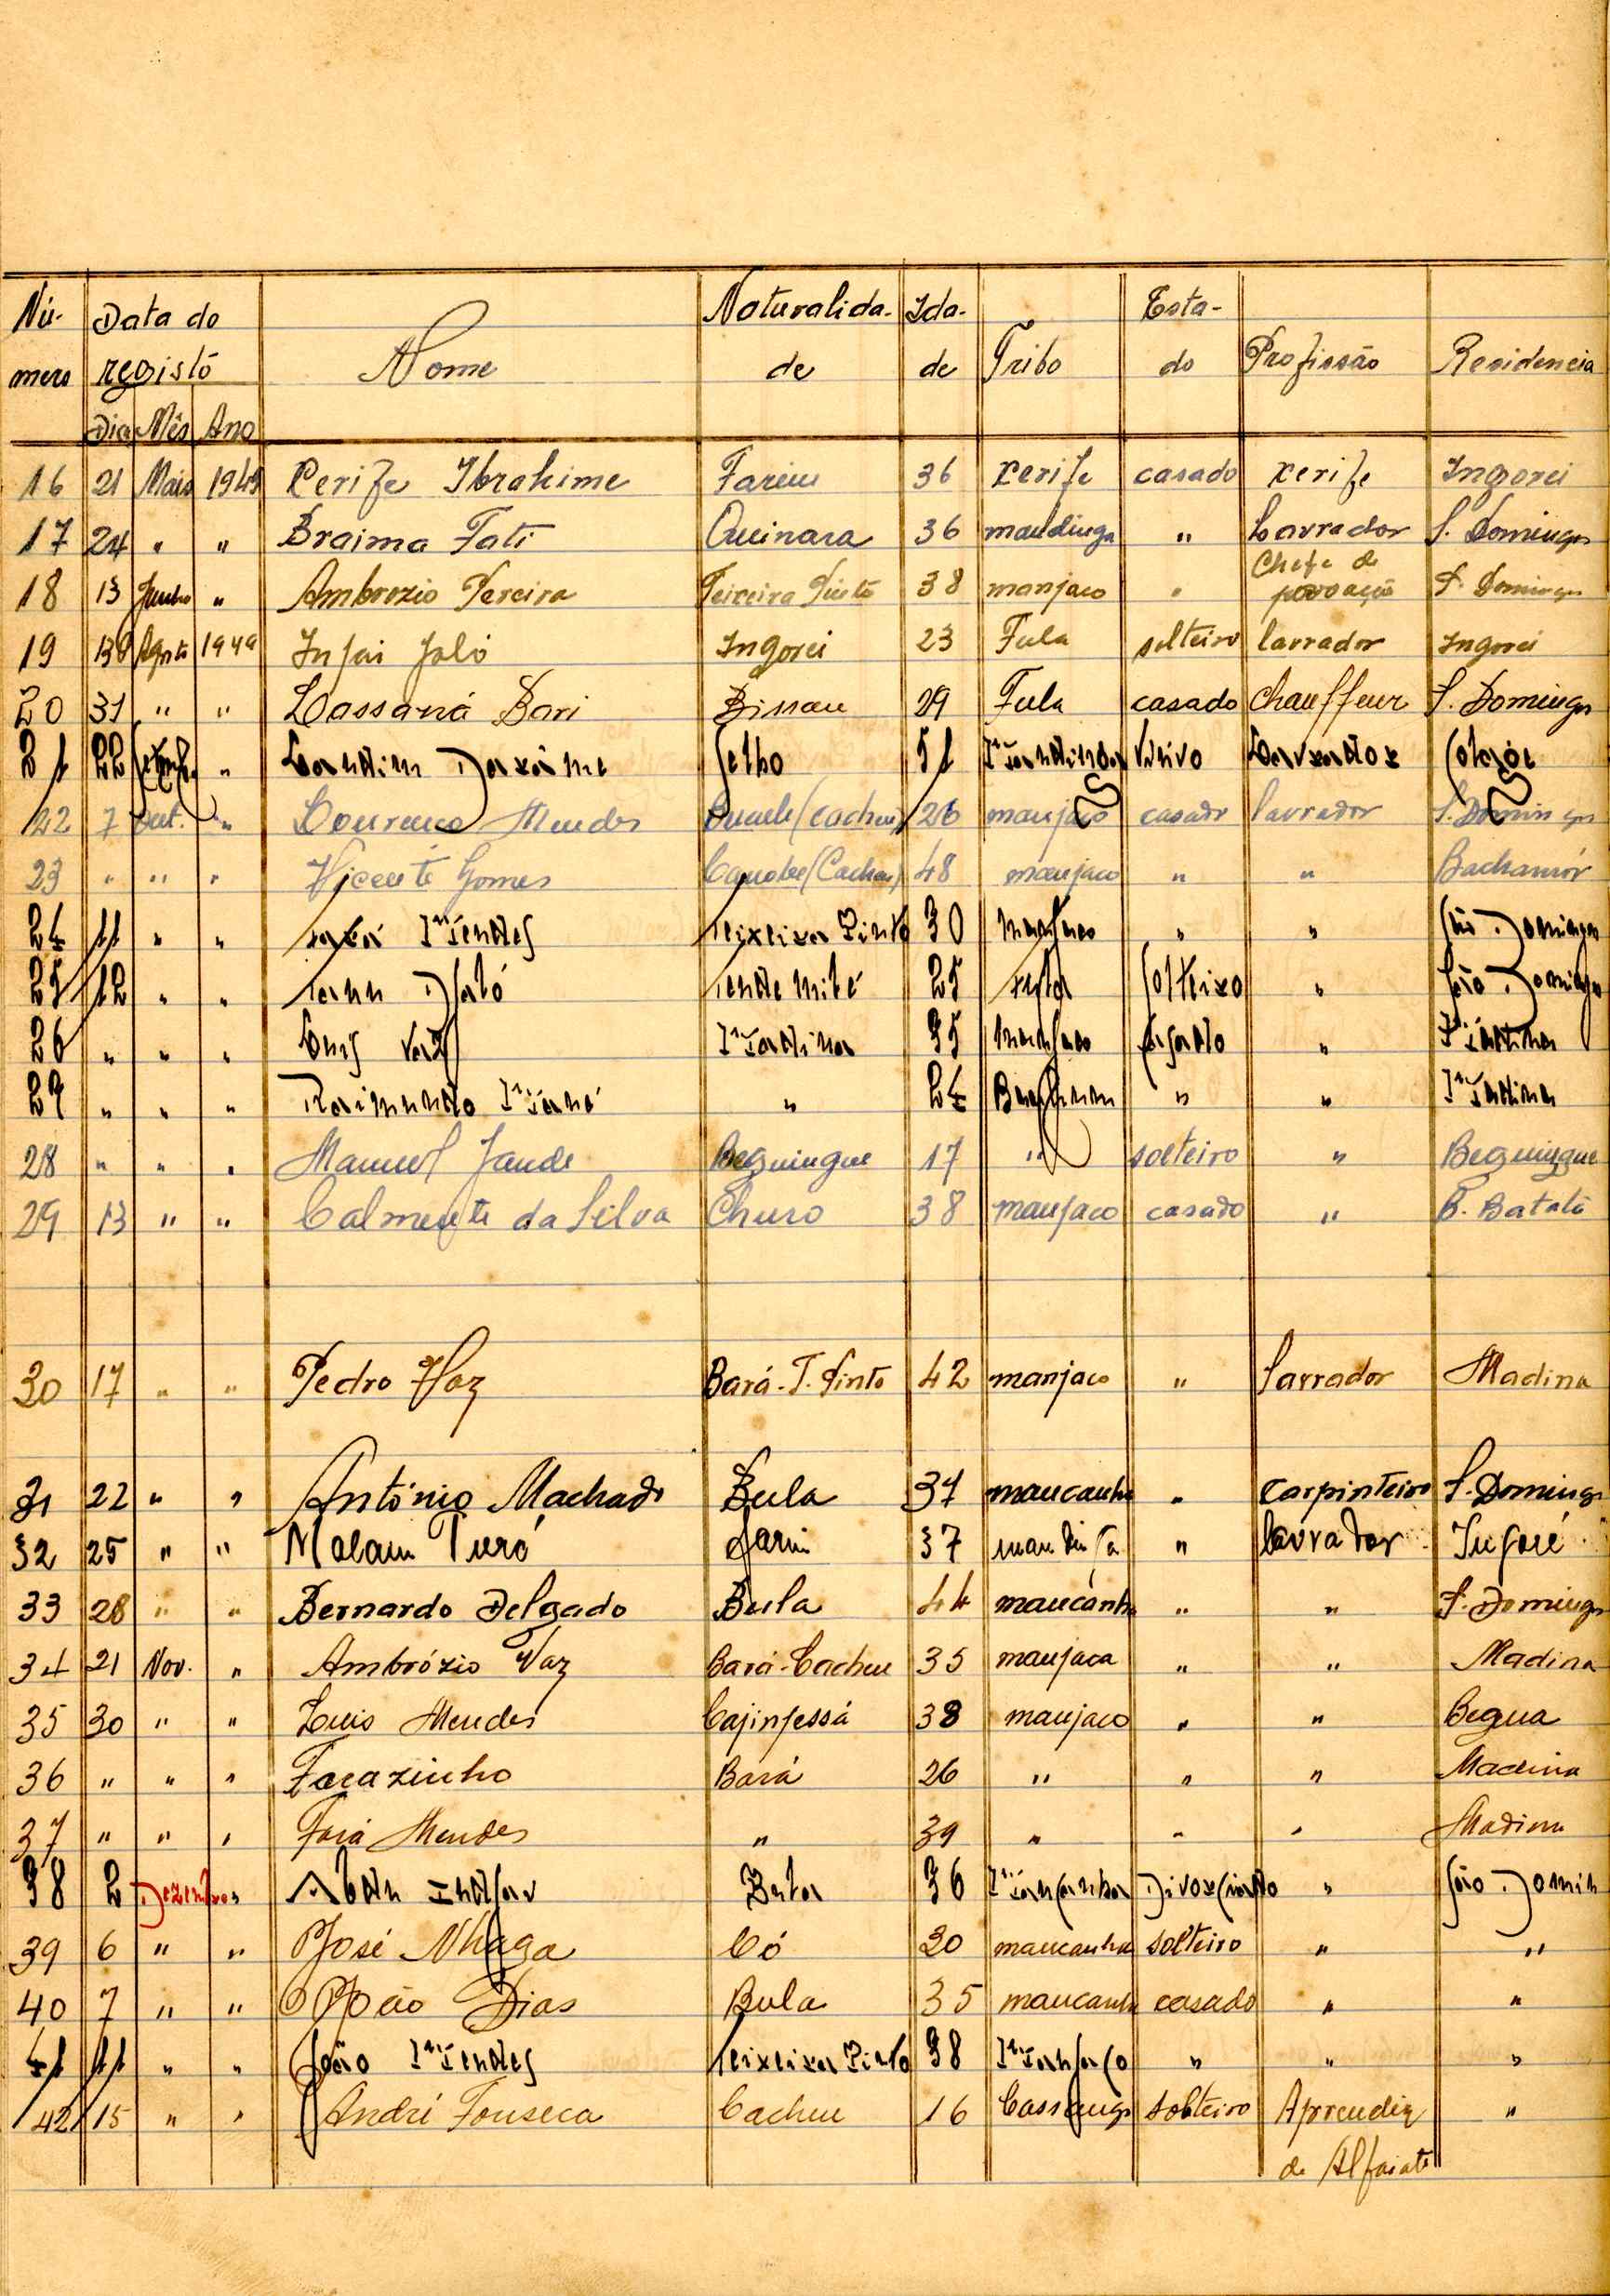 Nú- Data do Naturalida- Ida- Esta-
mero registo Nome de de Tribo do Profissão Residencia
Dia Mês Ano
16 21 Maio 1949 Xerife Ibrahime Farim 36 xerife casado xerife Ingorei
17 24 " " Braima Fati Quinara 36 mandinga " Lavrador S. Domingos
18 13 Junho " Ambrozio Pereira Teixeira Pinto 38 manjaco " Chefe de povoação S. Domingos
19 Agosto 1949 Injai Jaló Ingorei 23 Fula solteiro lavrador Ingorei
20 31 " " Lassaná Bari Bissau 29 Fula casado Chauffeur S. Domingos
21 22 " Landim 51 Mandinga Viúvo Lavrador
22 7 Out. " Lourenço Mendes (Cacheu) 26 manjaco casado lavrador S. Domingos
23 " " " Vicente Gomes Canobe (Cacheu) 48 manjaco " " Bachamór
24 11 " " Mendes Teixeira Pinto 30 manjaco " " São Domingos
25 12 " " Djaló 25 Fula Solteiro " São Domingos
26 " " " Luis Vaz Madina 35 manjaco Casado " Madina
27 " " " Raimundo Mané " 24 " " Madina
28 " " " Manuel Jande Beguingue 17 " solteiro " Beguingue
29 13 " " Calmente da Silva Churo 38 manjaco casado " B. Batatã
30 17 " " Pedro Vaz Bará-T. Pinto 42 manjaco " lavrador Madina
31 22 " " António Machado Bula 37 mancanha " Carpinteiro S. Domingos
32 25 " " Malam Turé Farim 37 mandinga " lavrador Ingoré
33 28 " " Bernardo Delgado Bula 44 mancanha " " S. Domingos
34 21 Nov. " Ambrózio Vaz Bará-Cacheu 35 manjaca " " Madina
35 30 " " Luis Mendes Cajinjessá 38 manjaco " " Begua
36 " " " Farazinho Bará 26 " " " Madina
37 " " " Fará Mendes " 39 " " " Madina
38 2 Dezembro " Bula 36 Mancanha Divorciado " São Domin
39 6 " " José Nhaga Có 30 mancanha solteiro " "
40 7 " " João Dias Bula 35 mancanha casado " "
41 11 " " João Mendes Teixeira Pinto 38 Manjaco " " "
42 15 " " André Fonseca Cacheu 16 Cassanga solteiro Aprendiz "
de Alfaiate